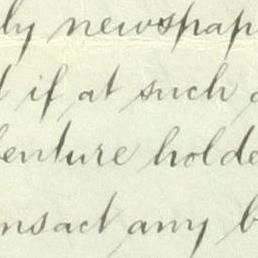 ly newspap
if at such
enture holde
nsact any b